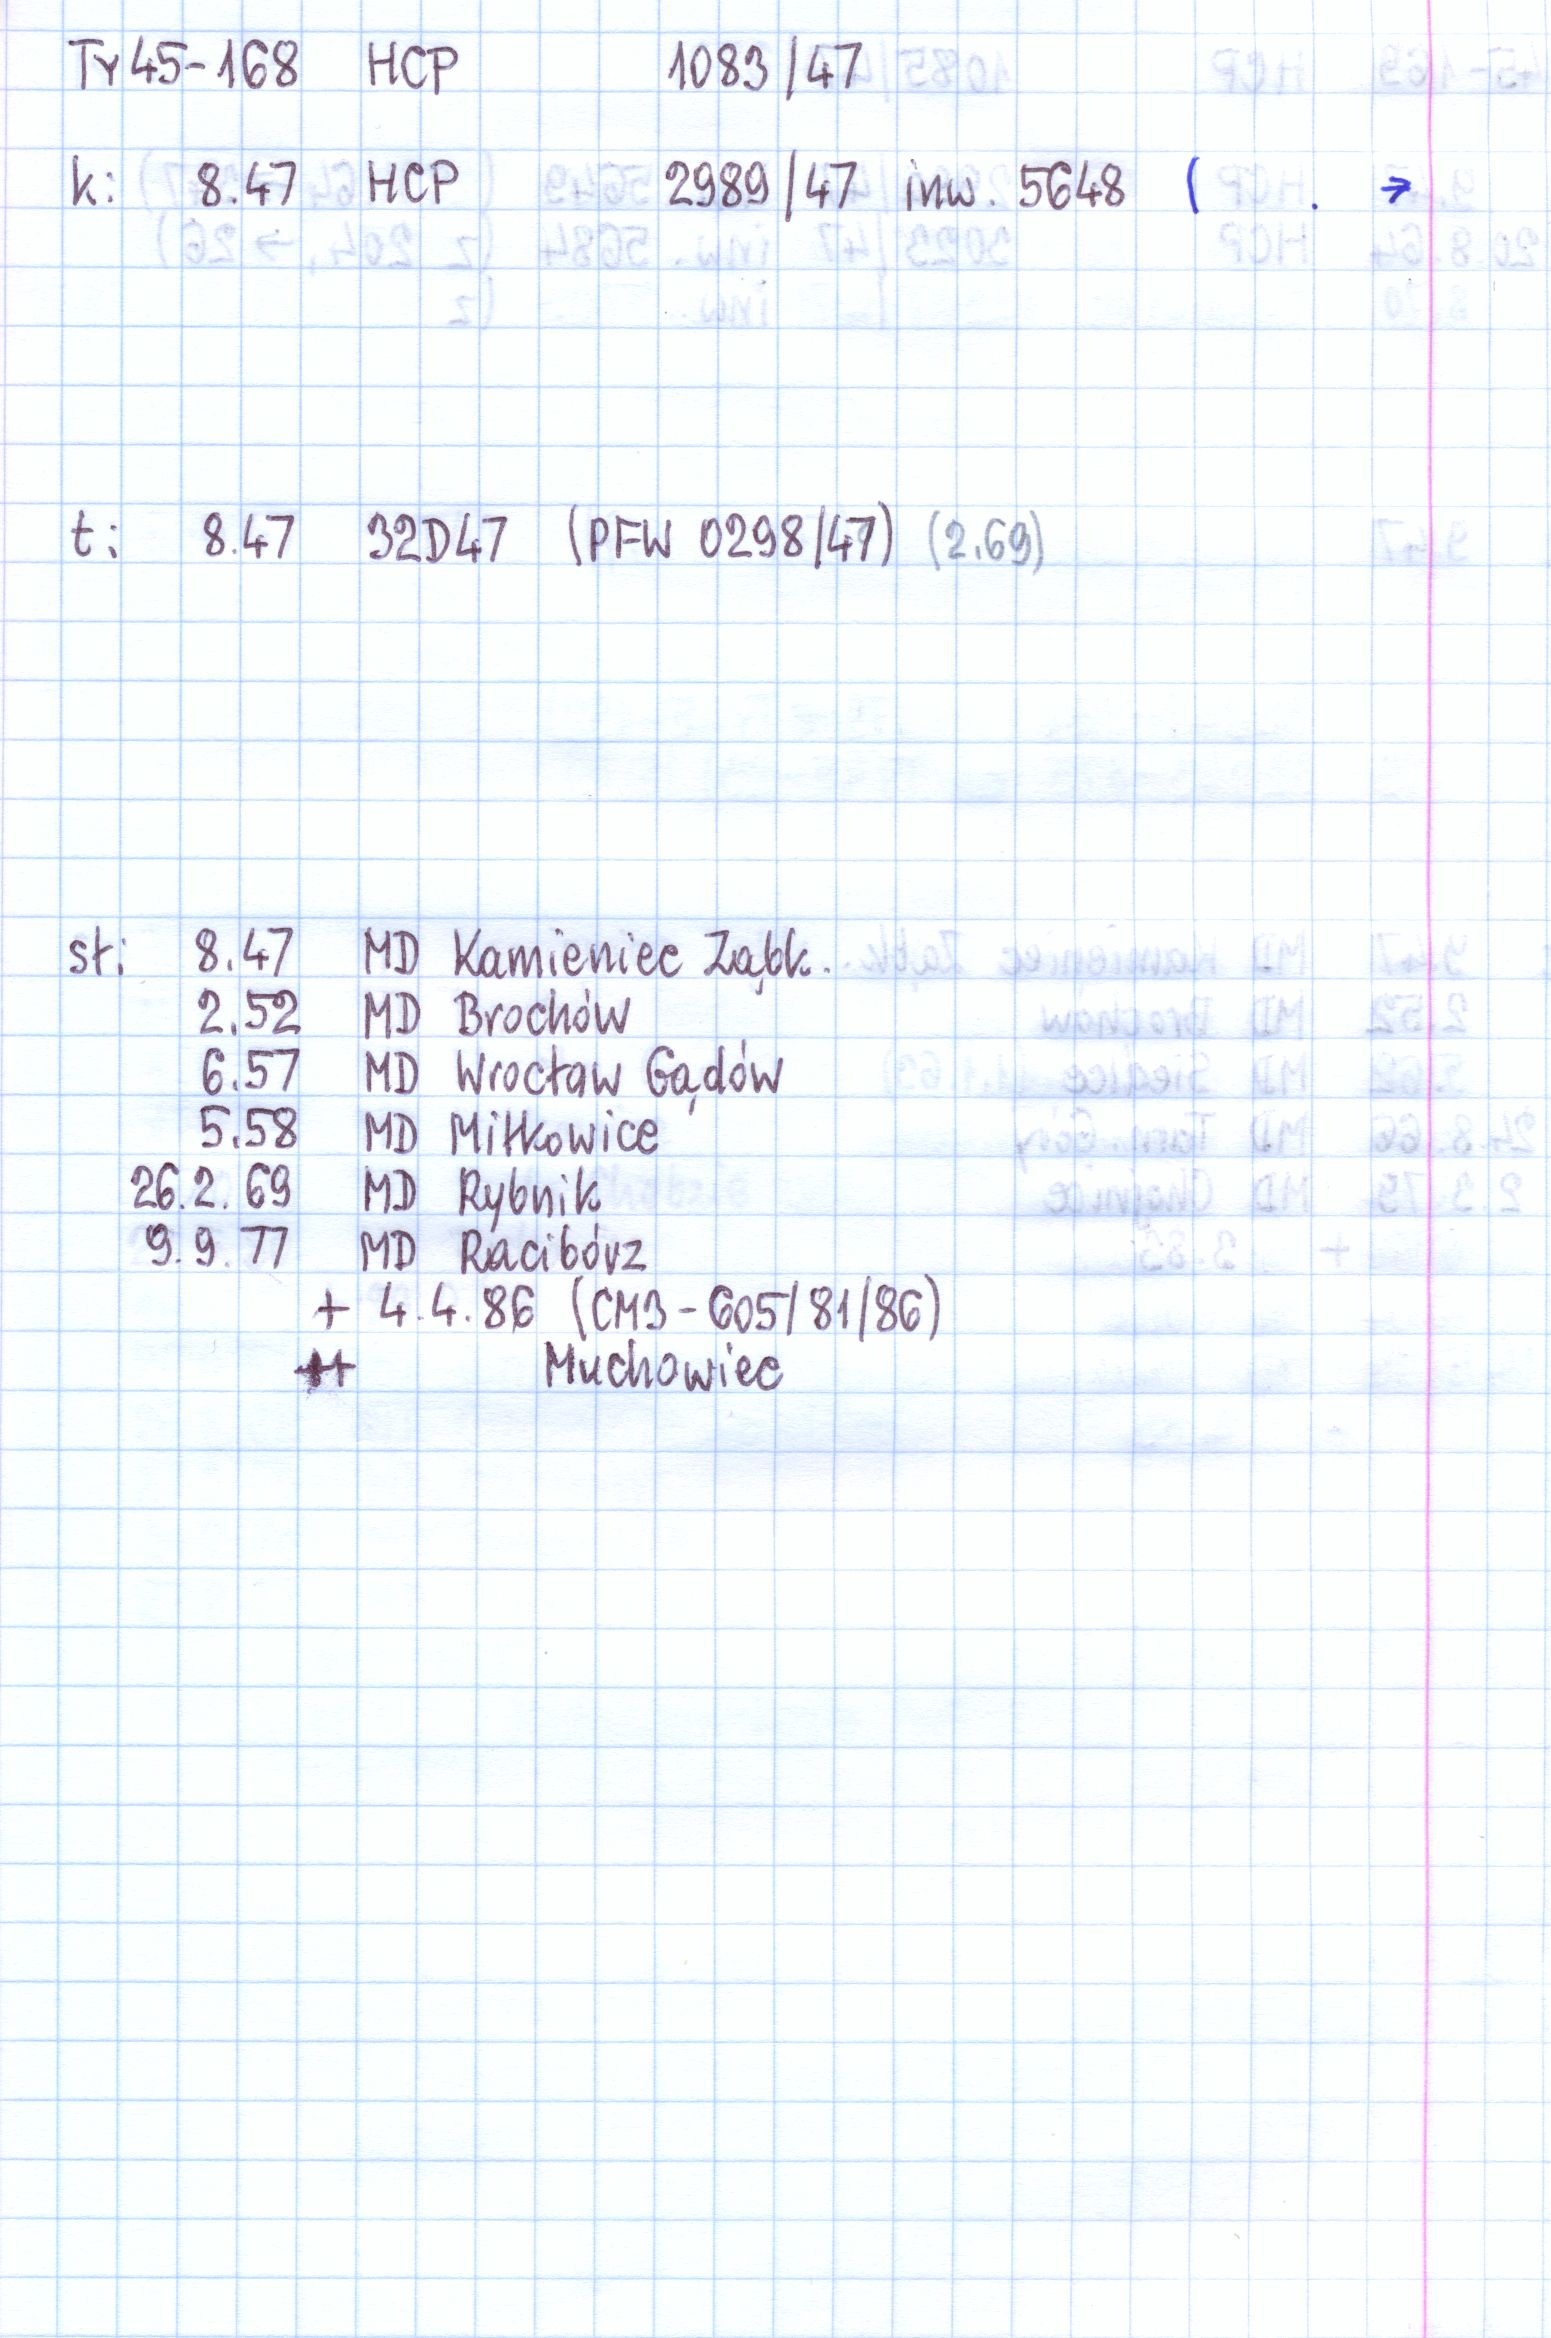 Tr45-168 HCP 1083/47
k: 8.47 HCP 2989/47 inw. 5648 ( . →
t: 8.47 32D47 (PFW 0298/47) (2.69)
st: 8.47 MD Kamieniec Ząbk.
2.52 MD Brochów
6.57 MD Wrocław Gądów
5.58 MD Miłkowice
26.2.69 MD Rybnik
9.9.77 MD Racibórz
+ 4.4.86 (CM3-605/81/86)
++ Muchowiec